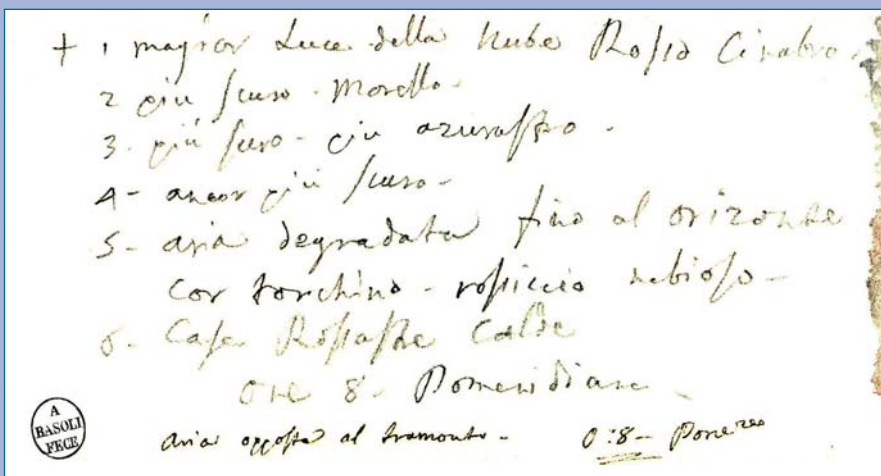 + 1 magior Luce della Nube Rosso Cinabro.
2 più scuro - Morello -
3 - più scuro - più azurastro.
4 - ancor più scuro -
5 - aria degradata fino al orizonte
cor torchino - rossiccio nebioso -
6 - Case Rossastre Calde
ore 8 - Pomeridiane
aria opposta al tramonto - O: 8 -
A
BASOLI
FECE